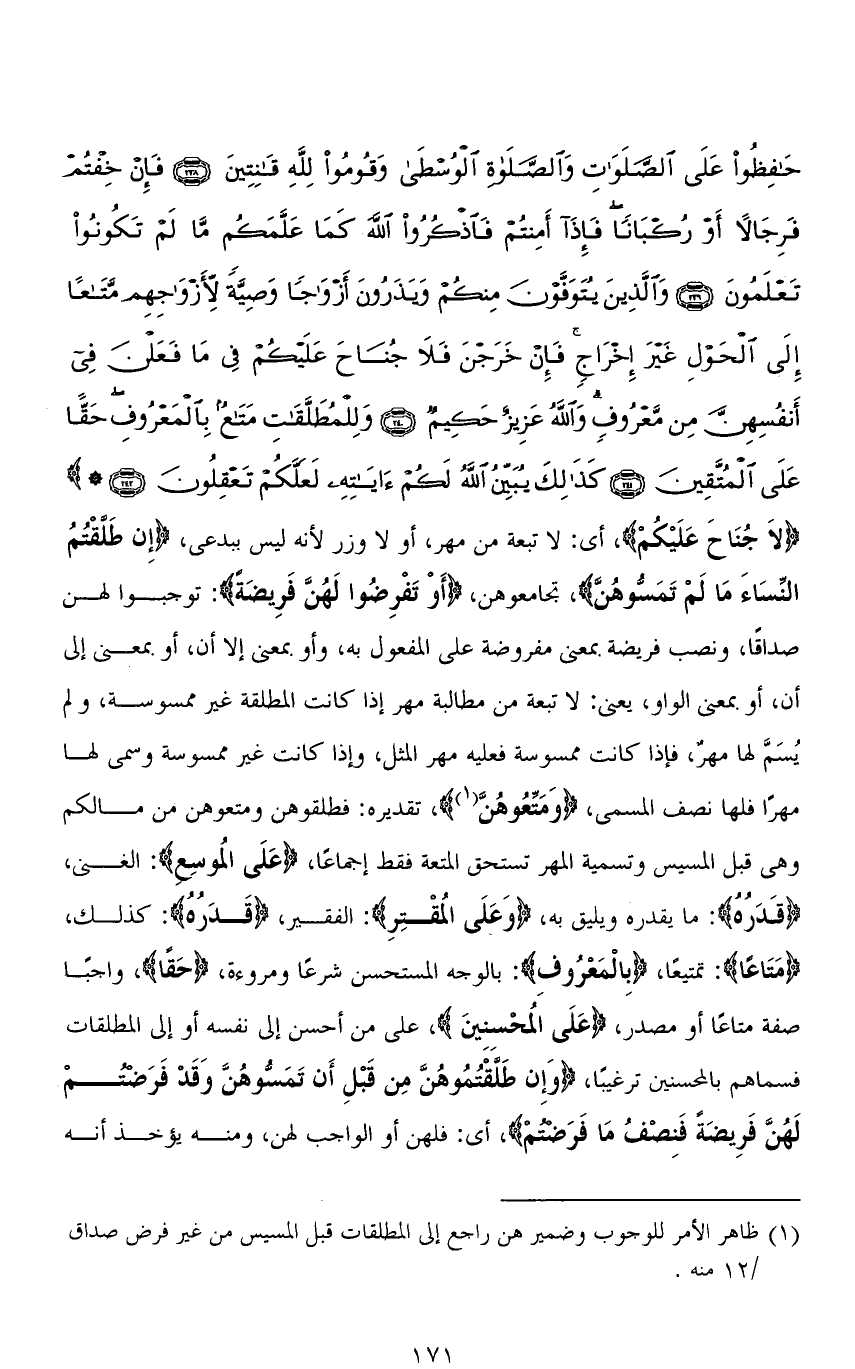 حَـٰفِظُوا۟ عَلَى ٱلصَّلَوَٰتِ وَٱلصَّلَوٰةِ ٱلْوُسْطَىٰ وَقُومُوا۟ لِلَّهِ قَـٰنِتِينَ ﴿٢٣٨﴾ فَإِنْ خِفْتُمْ
فَرِجَالًا أَوْ رُكْبَانًا ۖ فَإِذَآ أَمِنتُمْ فَٱذْكُرُوا۟ ٱللَّهَ كَمَا عَلَّمَكُم مَّا لَمْ تَكُونُوا۟
تَعْلَمُونَ ﴿٢٣٩﴾ وَٱلَّذِينَ يُتَوَفَّوْنَ مِنكُمْ وَيَذَرُونَ أَزْوَٰجًا وَصِيَّةً لِّأَزْوَٰجِهِم مَّتَـٰعًا
إِلَى ٱلْحَوْلِ غَيْرَ إِخْرَاجٍ ۚ فَإِنْ خَرَجْنَ فَلَا جُنَاحَ عَلَيْكُمْ فِى مَا فَعَلْنَ فِىٓ
أَنفُسِهِنَّ مِن مَّعْرُوفٍ ۗ وَٱللَّهُ عَزِيزٌ حَكِيمٌ ﴿٢٤٠﴾ وَلِلْمُطَلَّقَـٰتِ مَتَـٰعٌۢ بِٱلْمَعْرُوفِ ۖ حَقًّا
عَلَى ٱلْمُتَّقِينَ ﴿٢٤١﴾ كَذَٰلِكَ يُبَيِّنُ ٱللَّهُ لَكُمْ ءَايَـٰتِهِۦ لَعَلَّكُمْ تَعْقِلُونَ ﴿٢٤٢﴾ * ﴾
﴿لاَ جُنَاحَ عَلَيْكُمْ﴾، أى: لا تبعة من مهر، أو لا وزر لأنه ليس ببدعى، ﴿إِن طَلَّقْتُمُ
النِّسَاءَ مَا لَمْ تَمَسُّوهُنَّ﴾، تجامعوهن، ﴿أَوْ تَفْرِضُوا لَهُنَّ فَرِيضَةً﴾: توجبوا لهن
صداقًا، ونصب فريضة بمعنى مفروضة على المفعول به، وأو بمعنى إلا أن، أو بمعنى إلى
أن، أو بمعنى الواو، يعنى: لا تبعة من مطالبة مهر إذا كانت المطلقة غير ممسوسة، ولم
يُسَمَّ لها مهرٌ، فإذا كانت ممسوسة فعليه مهر المثل، وإذا كانت غير ممسوسة وسمى لها
مهرًا فلها نصف المسمى، ﴿وَمَتِّعُوهُنَّ(١)﴾، تقديره: فطلقوهن ومتعوهن من مالكم
وهى قبل المسيس وتسمية المهر تستحق المتعة فقط إجماعًا، ﴿عَلَى الُموسِعِ﴾: الغنى،
﴿قَدَرُهُ﴾: ما يقدره ويليق به، ﴿وَعَلَى الُمقْتِرِ﴾: الفقير، ﴿قَدَرُهُ﴾: كذلك،
﴿مَتَاعًا﴾: تمتيعًا، ﴿بِالْمَعْرُوفِ﴾: بالوجه المستحسن شرعًا ومروءة، ﴿حَقًا﴾، واجبًا
صفة متاعًا أو مصدر، ﴿عَلَى الُمحْسنِينَ ﴾، على من أحسن إلى نفسه أو إلى المطلقات
فسماهم بالمحسنين ترغيبًا، ﴿وَإِن طَلَّقْتُمُوهُنَّ مِن قَبْلِ أَن تَمَسُّوهُنَّ وَقَدْ فَرَضْتُمْ
لَهُنَّ فَرِيضَةً فَنِصْفُ مَا فَرَضْتُمْ﴾، أى: فلهن أو الواجب لهن، ومنه يؤخذ أنه
(١) ظاهر الأمر للوجوب وضمير هن راجع إلى المطلقات قبل المسيس من غير فرض صداق
/١٢ منه .
١٧١